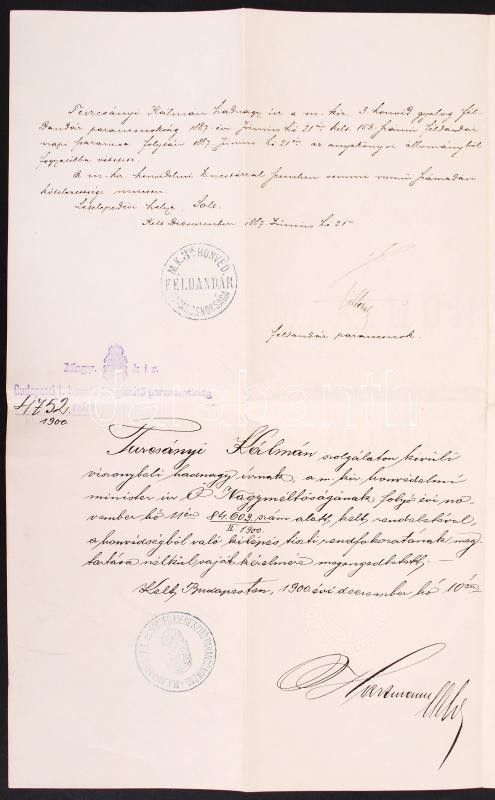 Turcsányi Kálmán hadnagy úr a m. kir. 3. honvéd gyalog fél-
dandár parancsnokság 1887. évi Június hó 21én kelt 153. számú féldandár
napi parancsa folytán 1887 Június hó 21én az anyakönyvi állományból
A m. kir. honvédelmi kincstárral szemben semmi nemű számadási
kötelezettsége nincsen.
Letelepedési helye: Solt.
Kelt 1887. Június hó 21én
M.K. 3IK HONVÉD
FÉLDANDÁR
PARANCSNOKSÁGA
féldandár parancsnok.
Magy. kir.
Budapesti I. honvéd kiegészítő parancsnokság
4752. szám
1900
Turcsányi Kálmán szolgálaton kivüli
viszonybeli hadnagy úrnak, a m. kir. honvédelmi
minister úr Ő Nagyméltóságának folyó évi no-
vember hó 11én 84.603. szám alatt kelt rendeletével
II 1900.
a honvédségből való kilépés tiszti rendfokozatának meg-
tartása nélkül saját kérelmére megengedtetett. —
Kelt, Budapesten, 1900 évi december hó 10én
Hartmann
darabanth